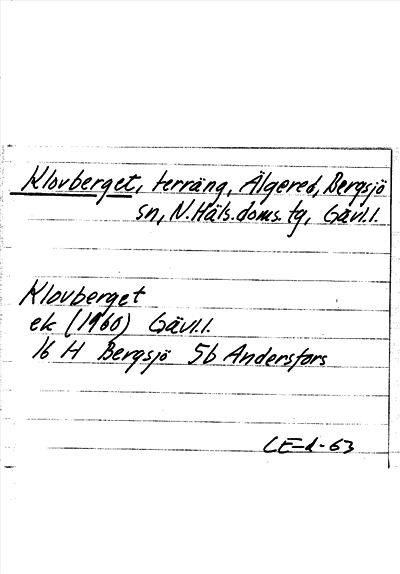 Klovberget, terräng, Älgered, Bergsjö
sn, N. Häls. doms. tg, Gävl.l.
Klovberget
ek (1960) Gävl.l.
16 H Bergsjö 5b Andersfors